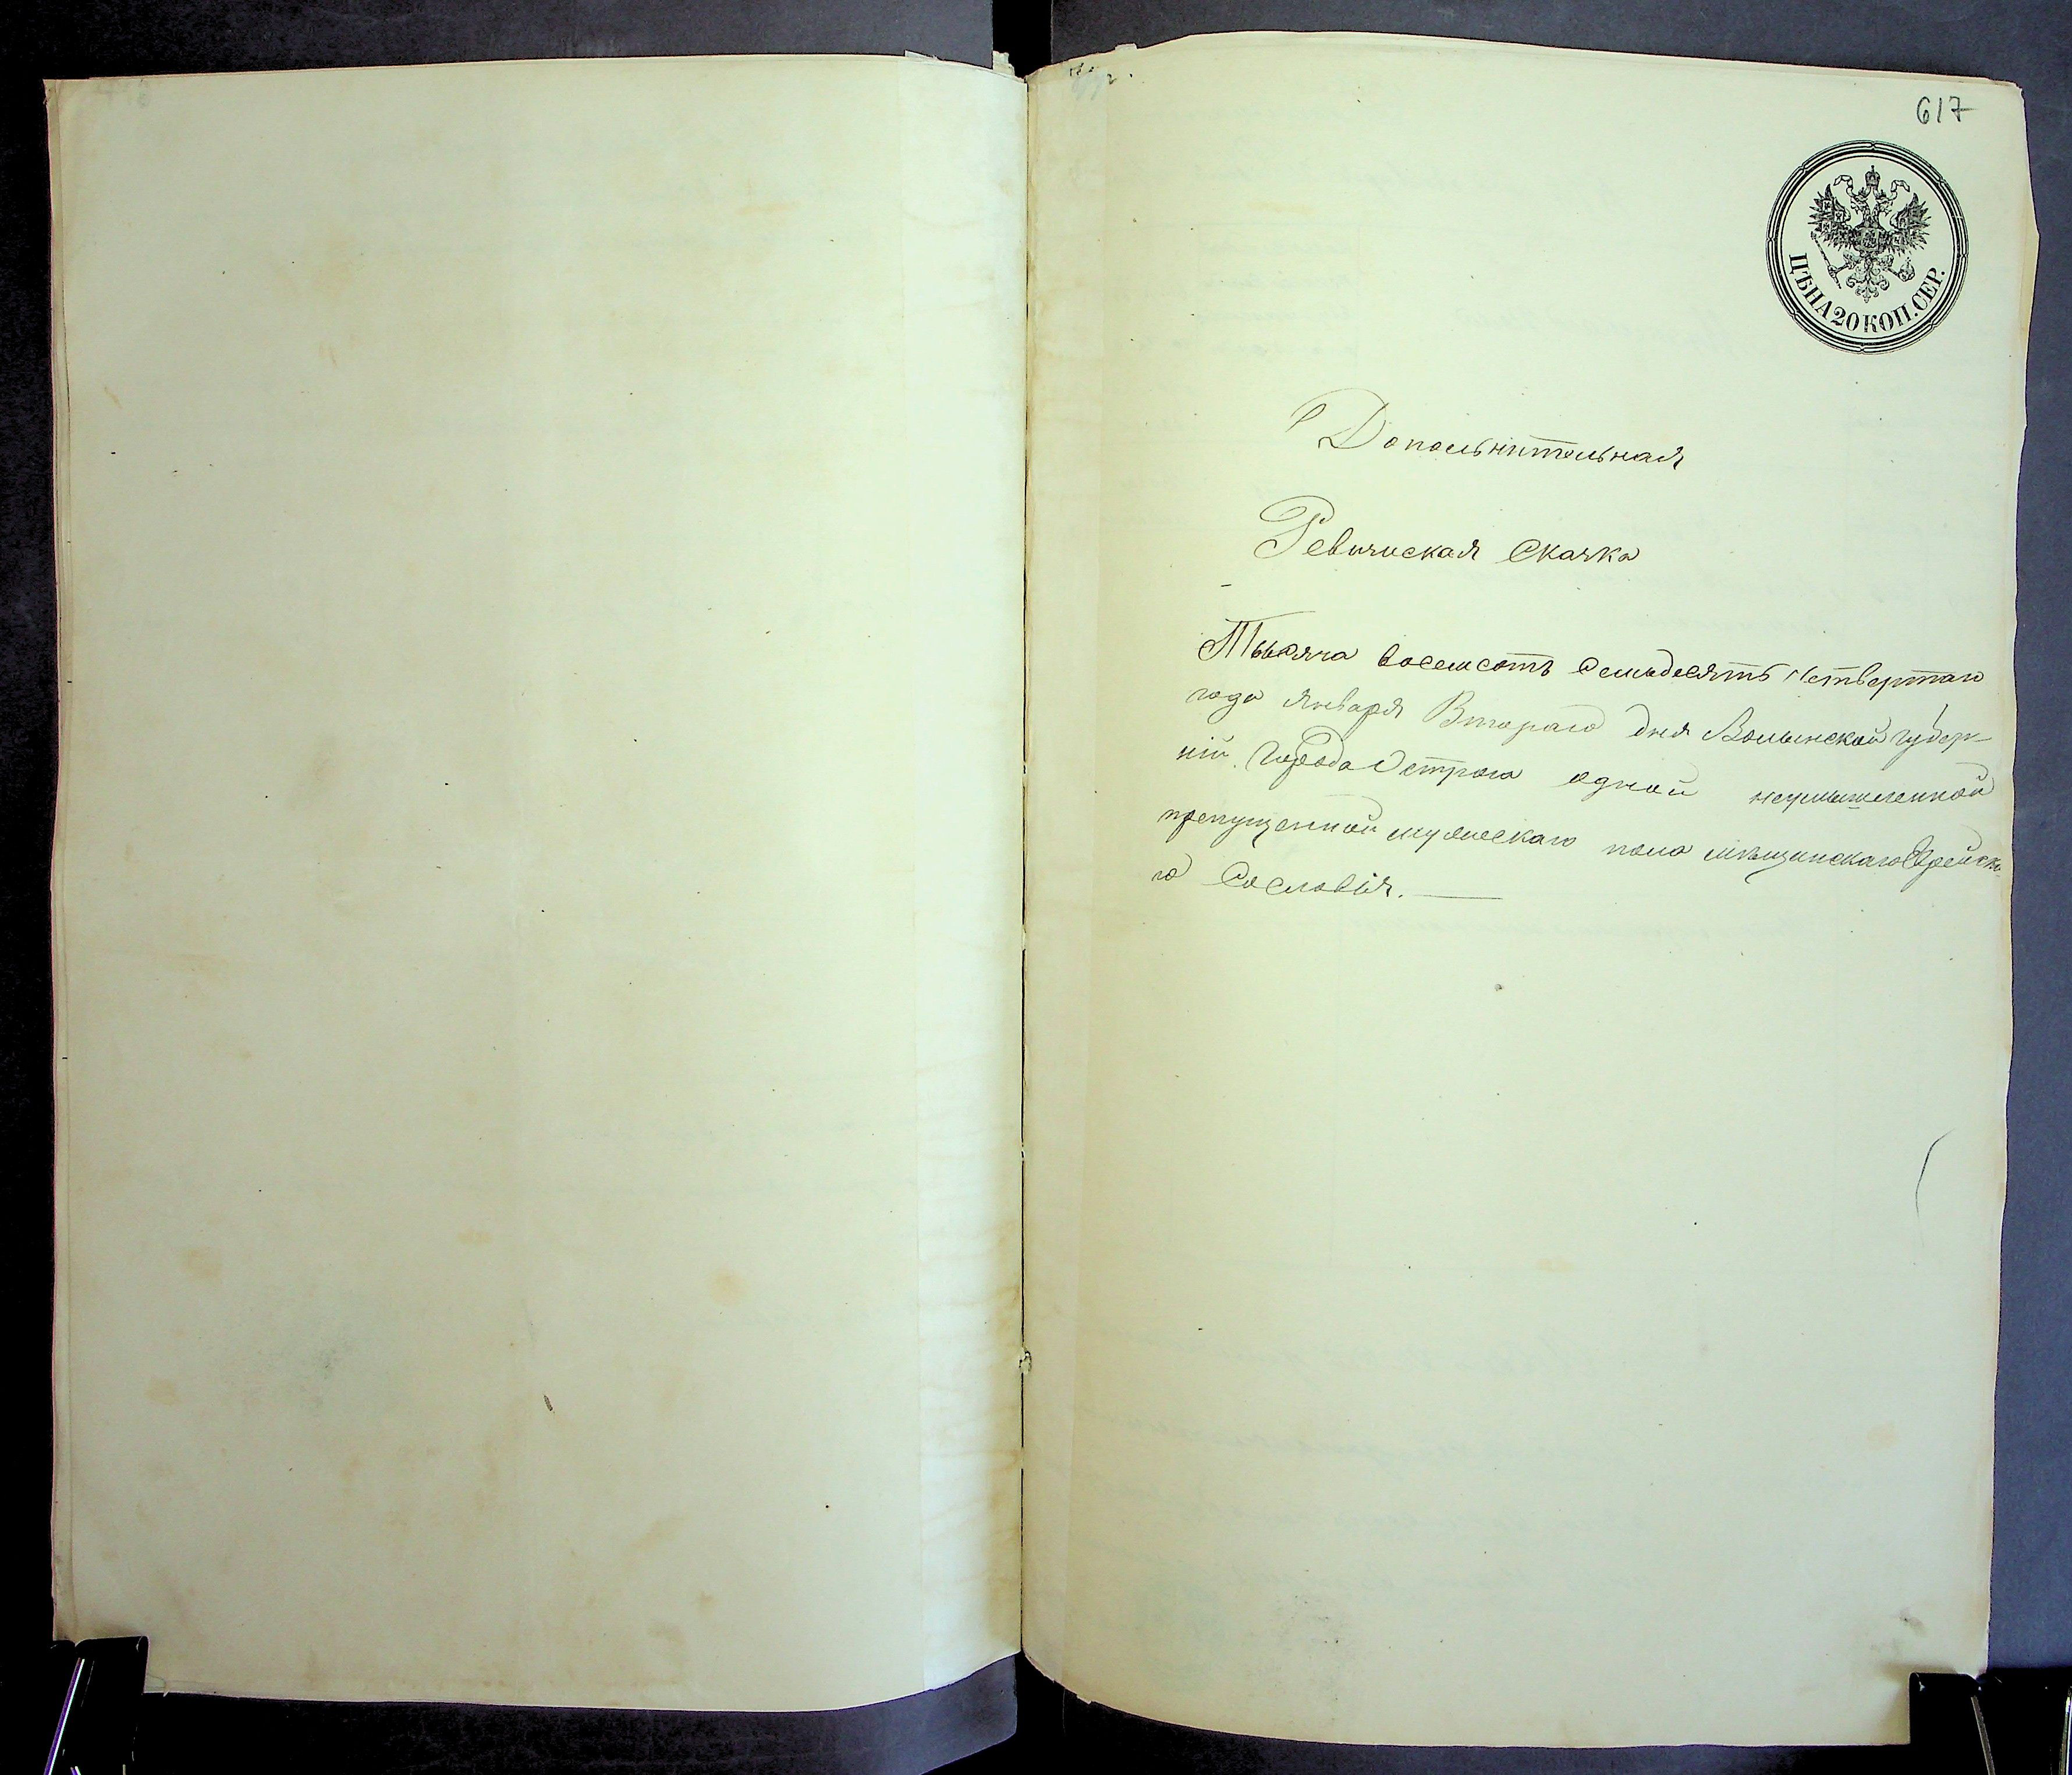 617
ЦѢНА 20 КОП. СЕР.
Допольнительная
Ревизская Сказка
Тысяча восемсотъ Семьдесятъ Четвертаго
года Января Втораго дня Волынской Губер-
ніи. Города Острога одной неумышленной
пропущенной мужескаго пола мѣщанскаго Еврейска-
го Сословія.